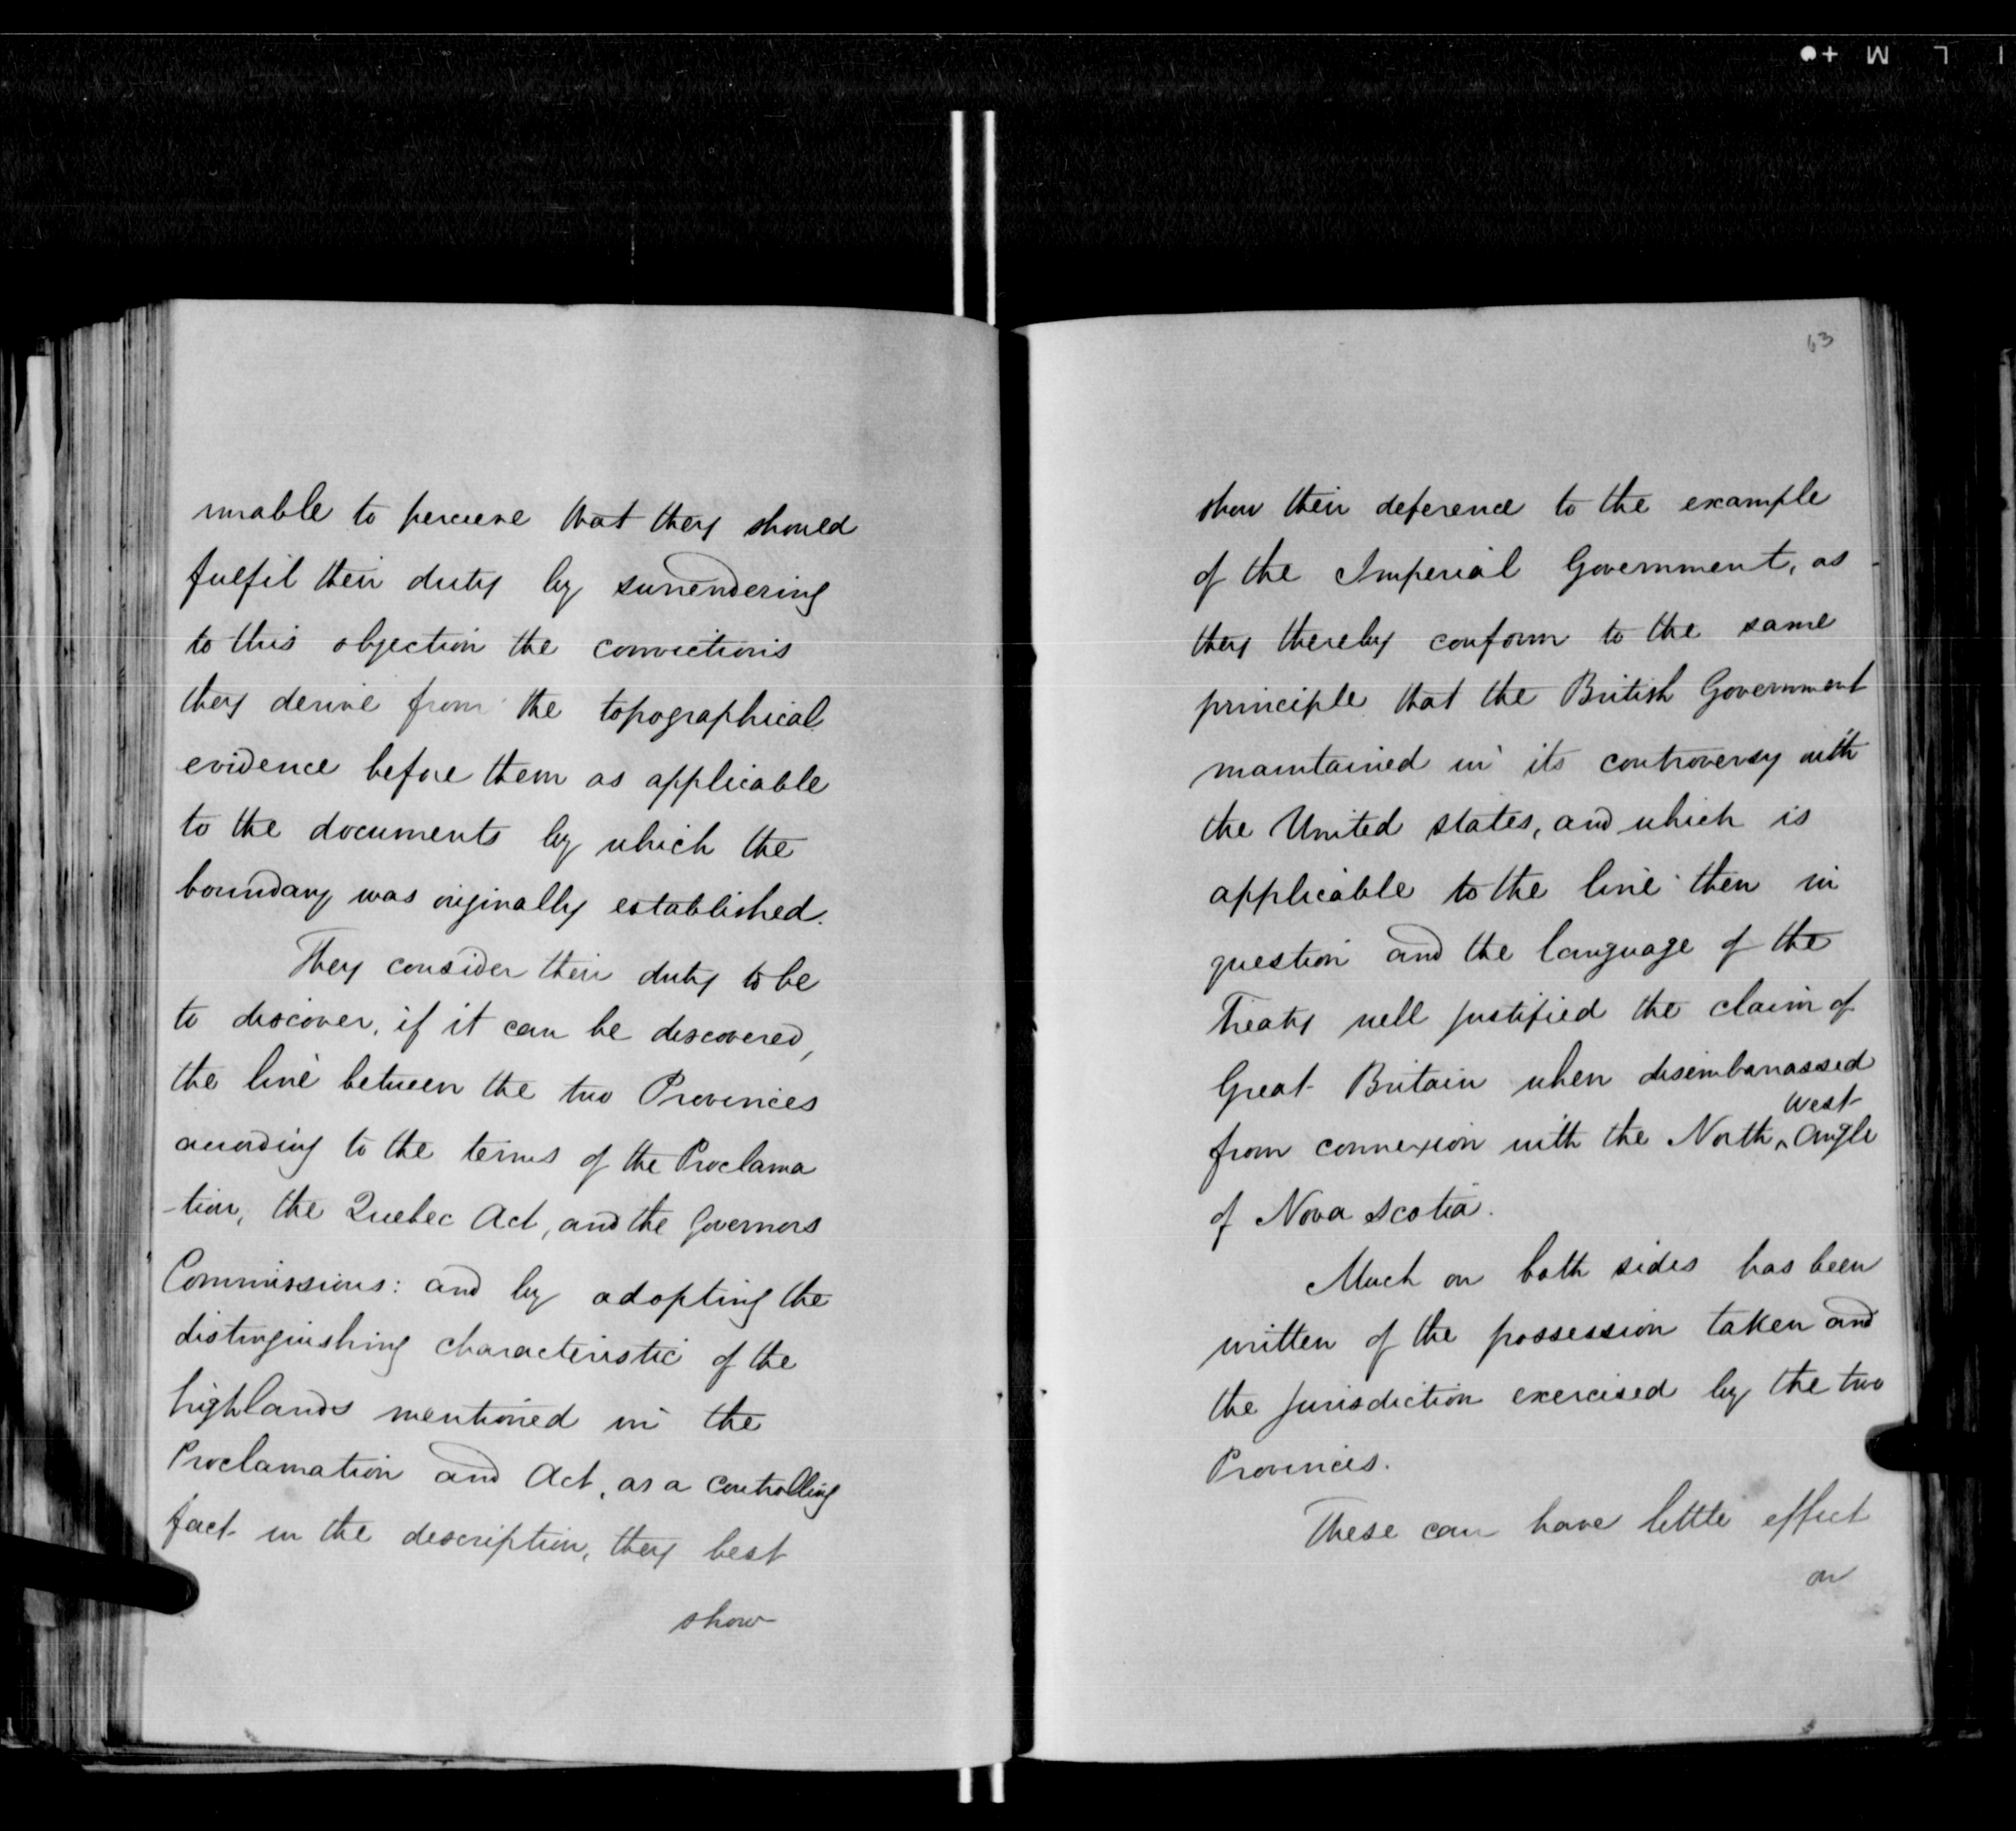 unable to perceive that they should
fulfil their duty by surrendering
to this objection the convictions
they derive from the topographical
evidence before them as applicable
to the documents by which the
boundary was originally established.
They consider their duty to be
to discover, if it can be discovered,
the line between the two Provinces
according to the terms of the Proclama
-tion, the Quebec Act, and the Governors
Commissions: and by adopting the
distinguishing characteristic of the
highlands mentioned in the
Proclamation and Act, as a controlling
fact in the description, they best
show
63
show their deference to the example
of the Imperial Government, as
they thereby conform to the same
principle that the British Government
maintained in its controversy with
the United states, and which is
applicable to the line then in
question and the language of the
Treaty well justified the claim of
Great Britain when disembarrassed
west
from connexion with the North ^ Angle
of Nova Scotia.
Much on both sides has been
written of the possession taken and
the jurisdiction exercised by the two
Provinces.
These can have little effect
on